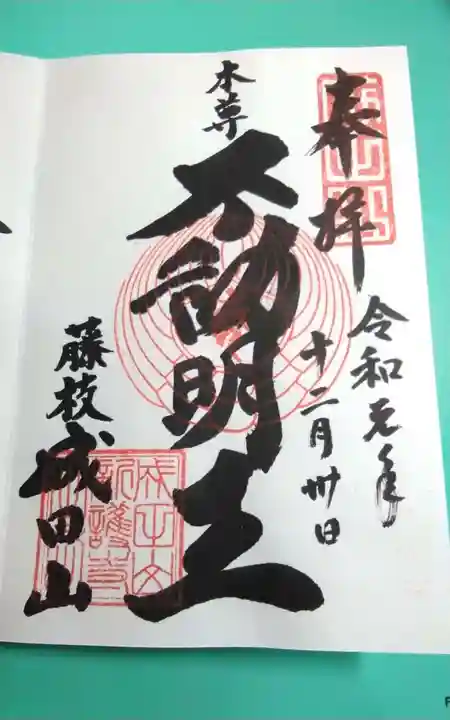 奉拝
令和元年
十二月卅日
本尊
不動明王
藤枝
成田山